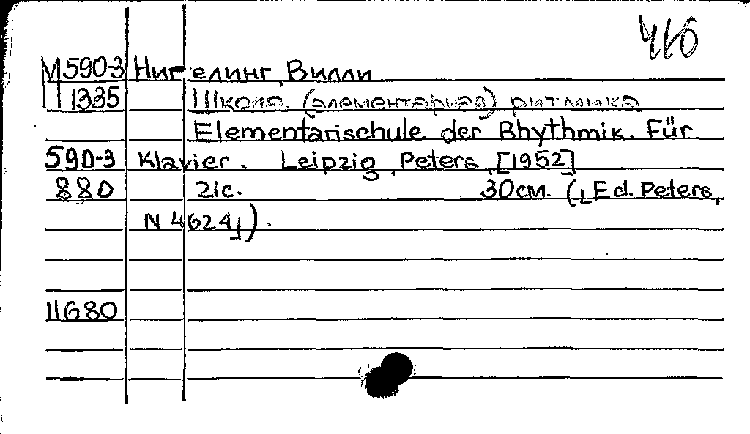 416
М590-3 Нигелинг, Вилли
1335 Школа (элементарная) ритмика
Elementarschule der Rhythmik. Für
590-3 Klavier. Leipzig, Peters, [1952]
880 21с. 30см. („Ed. Peters,
N 4624“).
11680